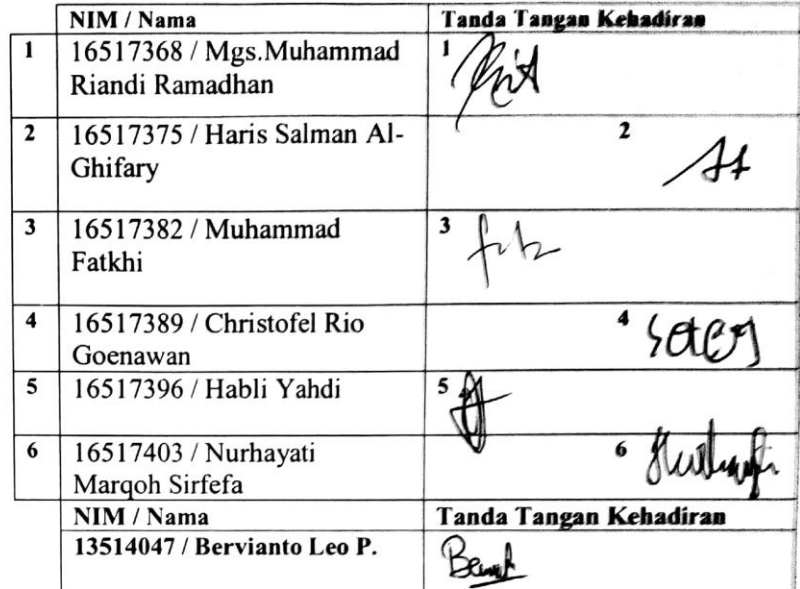 NIM / Nama Tanda Tangan Kehadiran
1 16517368 / Mgs.Muhammad 1
Riandi Ramadhan
2 16517375 / Haris Salman Al- 2
Ghifary
3 16517382 / Muhammad 3
Fatkhi
4 16517389 / Christofel Rio 4
Goenawan
5 16517396 / Habli Yahdi 5
6 16517403 / Nurhayati 6
Marqoh Sirfefa
NIM / Nama Tanda Tangan Kehadiran
13514047 / Bervianto Leo P.